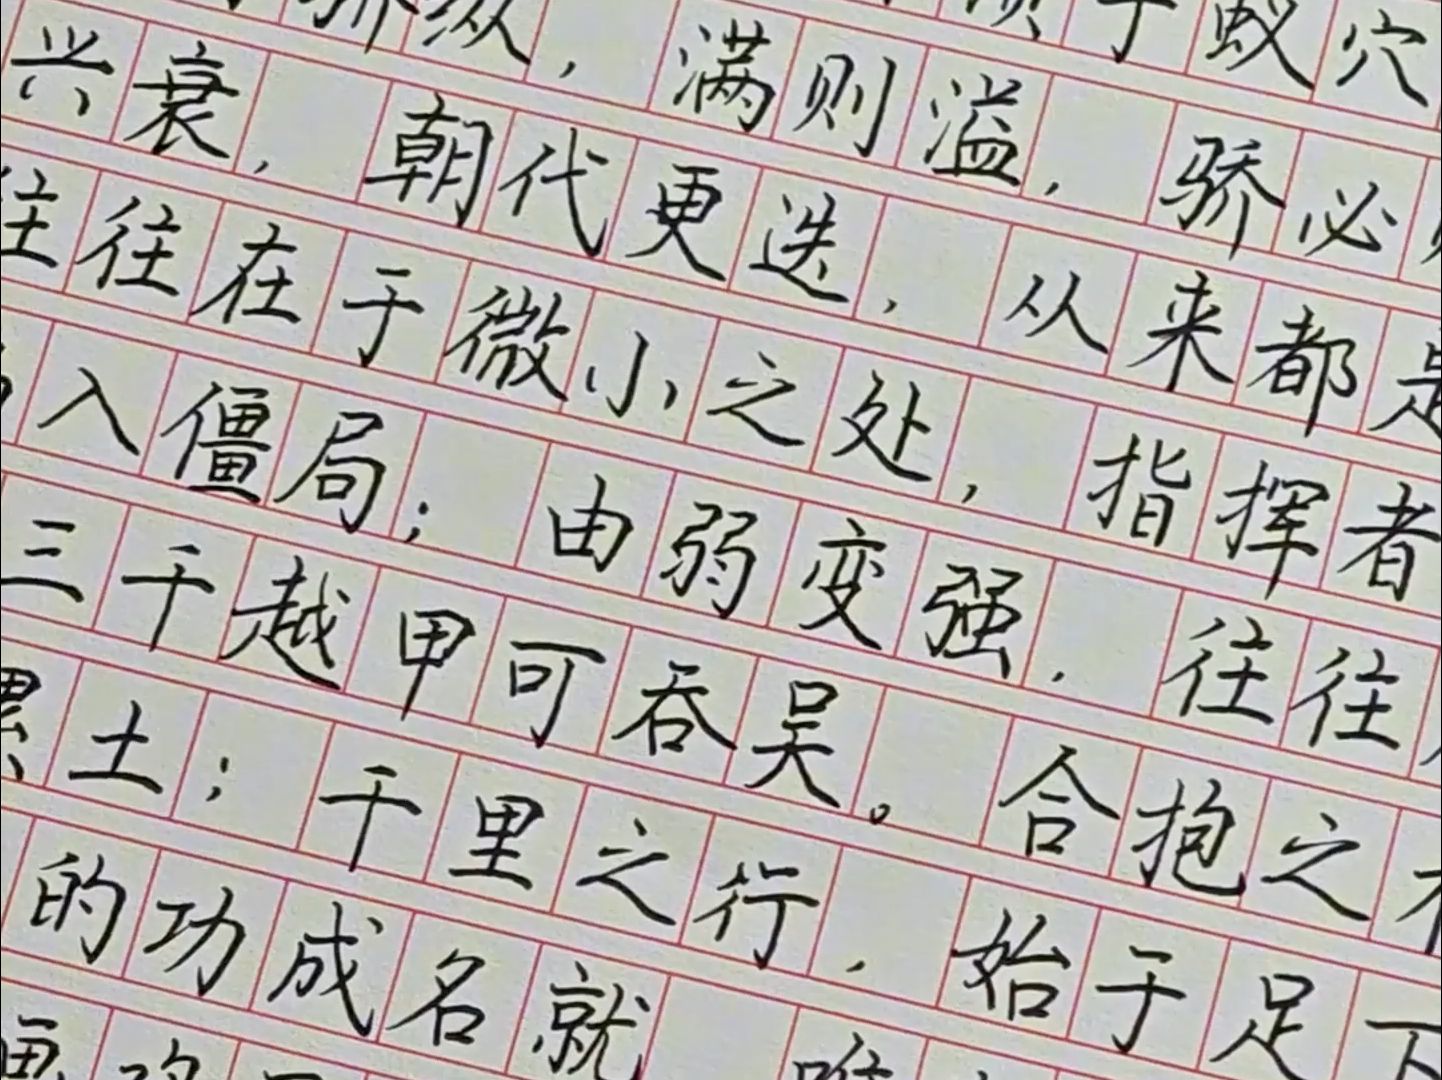 于蚁穴
骄纵，满则溢，骄必
兴衰，朝代更迭，从来都是
往往在于微小之处，指挥者
入僵局；由弱变强，往往
三千越甲可吞吴。合抱之
累土；千里之行，始于足下
的功成名就